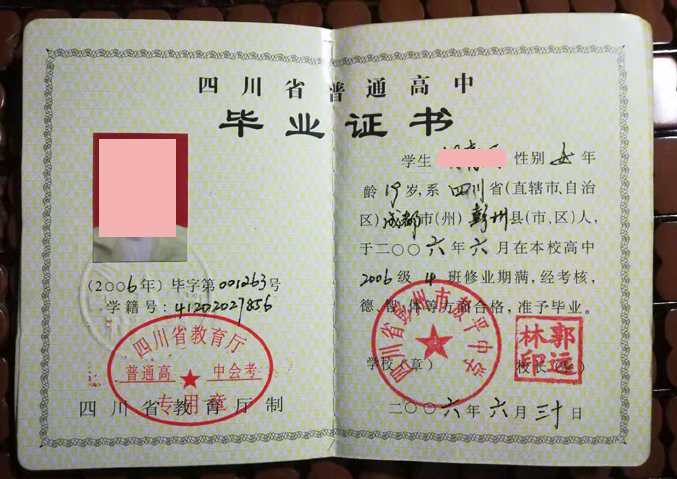 四川省普通高中
毕业证书
(2006年)毕字第001263号
学籍号:41202027856
四川省教育厅
普通高中会考
专用章
四川省教育厅制
学生 性别女年
龄19岁,系四川省(直辖市、自治
区)成都市(州)彭州县(市、区)人,
于二〇〇六年六月在本校高中
2006级 班修业期满,经考核,
德、智、体等方面合格,准予毕业。
四川省彭州市 中学
学校(章) 校长(章)
郭运林印
二〇〇六年六月三十日